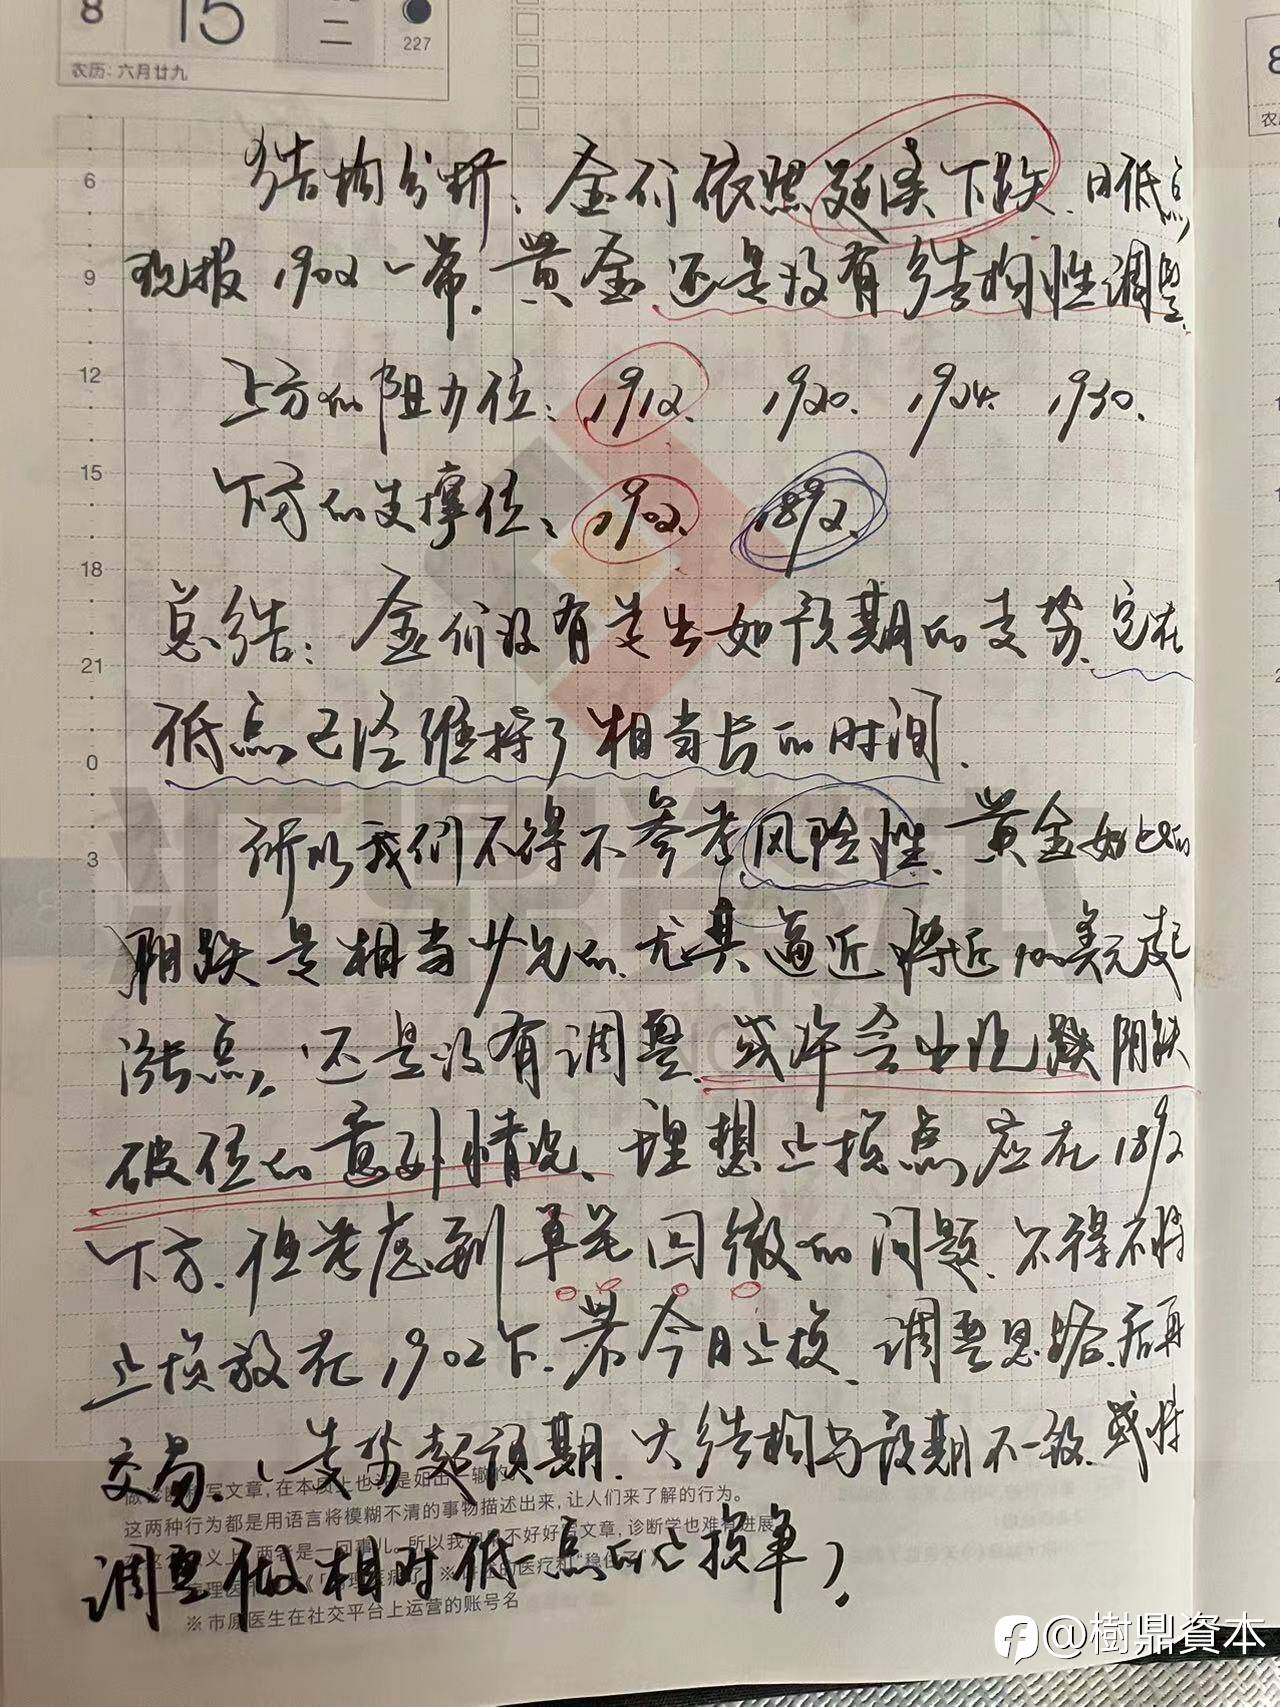 8 15 二
227
农历：六月廿九
6
结构分析：金价依然延续下跌．日低点
9
现报1902一带．黄金还是没有结构性调整．
12
上方的阻力位：1912． 1920． 1924． 1930．
15
下方的支撑位：1902． 1892．
18
总结：金价没有走出如预期的走势．它在
21
低点已经维持了相当长的时间．
0
所以我们不得不参考风险性．黄金如此的
3
阴跌是相当少见的．尤其逼近将近100美元起
涨点．还是没有调整．或许会出现跌阴跌
破位的意外情况．理想止损点应在1892
下方．但考虑到单笔回撤的问题．不得不将
止损放在1902下．若今日止损．调整思路后再
交易．（走势超预期．大结构与预期不一致．或将
写文章，在本质上也许是如出一辙的。
这两种行为都是用语言将模糊不清的事物描述出来，让人们来了解的行为。
两者是一回事儿。所以我 不好好 文章，诊断学也难有进展
调整做相对低一点的止损单）．
※市原医生在社交平台上运营的账号名
汇鼎资本
@樹鼎資本